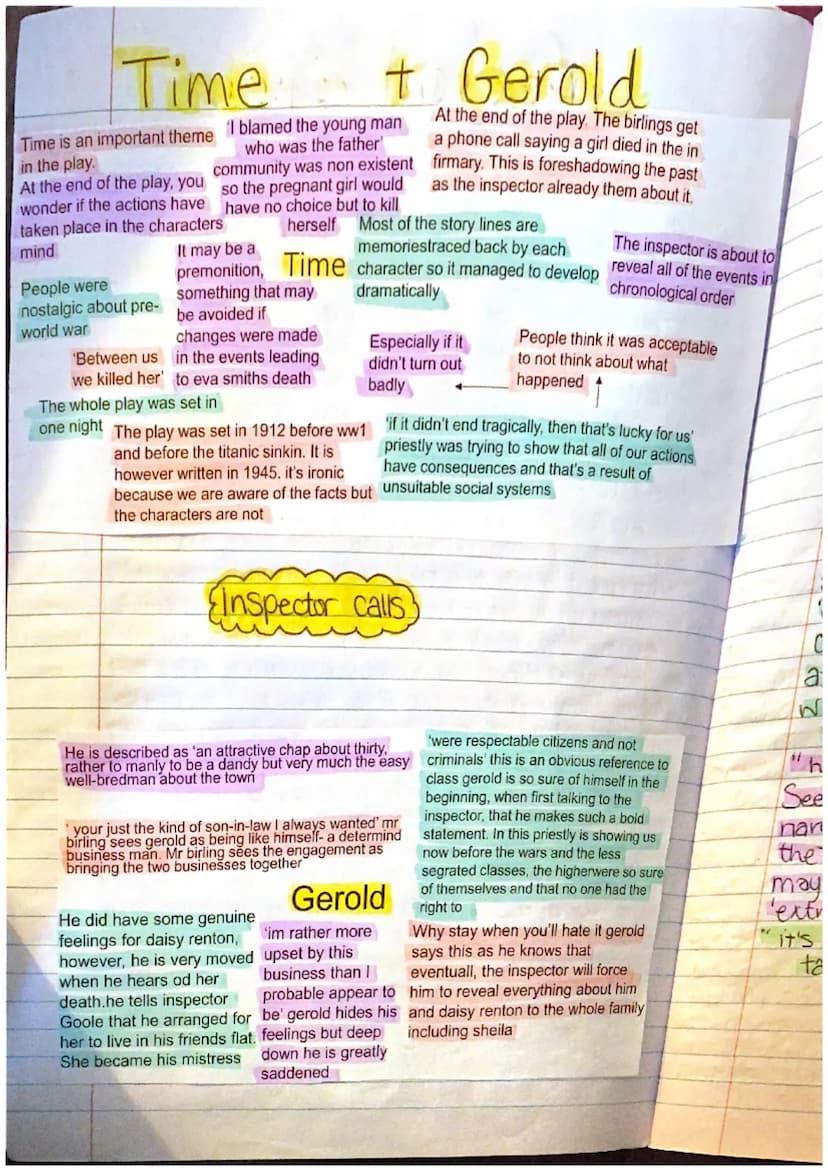 Time + Gerold
Time is an important theme
in the play.
At the end of the play, you
wonder if the actions have
taken place in the characters
mind
'I blamed the young man
who was the father'
community was non existent
so the pregnant girl would
have no choice but to kill
herself
At the end of the play. The birlings get
a phone call saying a girl died in the in
firmary. This is foreshadowing the past
as the inspector already them about it.
People were
nostalgic about pre-
world war
It may be a
premonition,
something that may
be avoided if
changes were made
in the events leading
to eva smiths death
Time
Most of the story lines are
memoriestraced back by each
character so it managed to develop
dramatically
The inspector is about to
reveal all of the events in
chronological order
'Between us
we killed her'
Especially if it
didn't turn out
badly
People think it was acceptable
to not think about what
happened
The whole play was set in
one night
The play was set in 1912 before ww1
and before the titanic sinkin. It is
however written in 1945. it's ironic
because we are aware of the facts but
the characters are not
'if it didn't end tragically, then that's lucky for us'
priestly was trying to show that all of our actions
have consequences and that's a result of
unsuitable social systems
Inspector calls
He is described as 'an attractive chap about thirty,
rather to manly to be a dandy but very much the easy
well-bredman about the town
' your just the kind of son-in-law I always wanted' mr
birling sees gerold as being like himself- a determind
business man. Mr birling sees the engagement as
bringing the two businesses together
'were respectable citizens and not
criminals' this is an obvious reference to
class gerold is so sure of himself in the
beginning, when first talking to the
inspector, that he makes such a bold
statement. In this priestly is showing us
now before the wars and the less
segrated classes, the higherwere so sure
of themselves and that no one had the
right to
Gerold
He did have some genuine
feelings for daisy renton,
however, he is very moved
when he hears od her
death.he tells inspector
Goole that he arranged for
her to live in his friends flat.
She became his mistress
'im rather more
upset by this
business than I
probable appear to
be' gerold hides his
feelings but deep
down he is greatly
saddened
Why stay when you'll hate it gerold
says this as he knows that
eventuall, the inspector will force
him to reveal everything about him
and daisy renton to the whole family
including sheila
"h
See
nar
the
may
'extr
"it's
ta